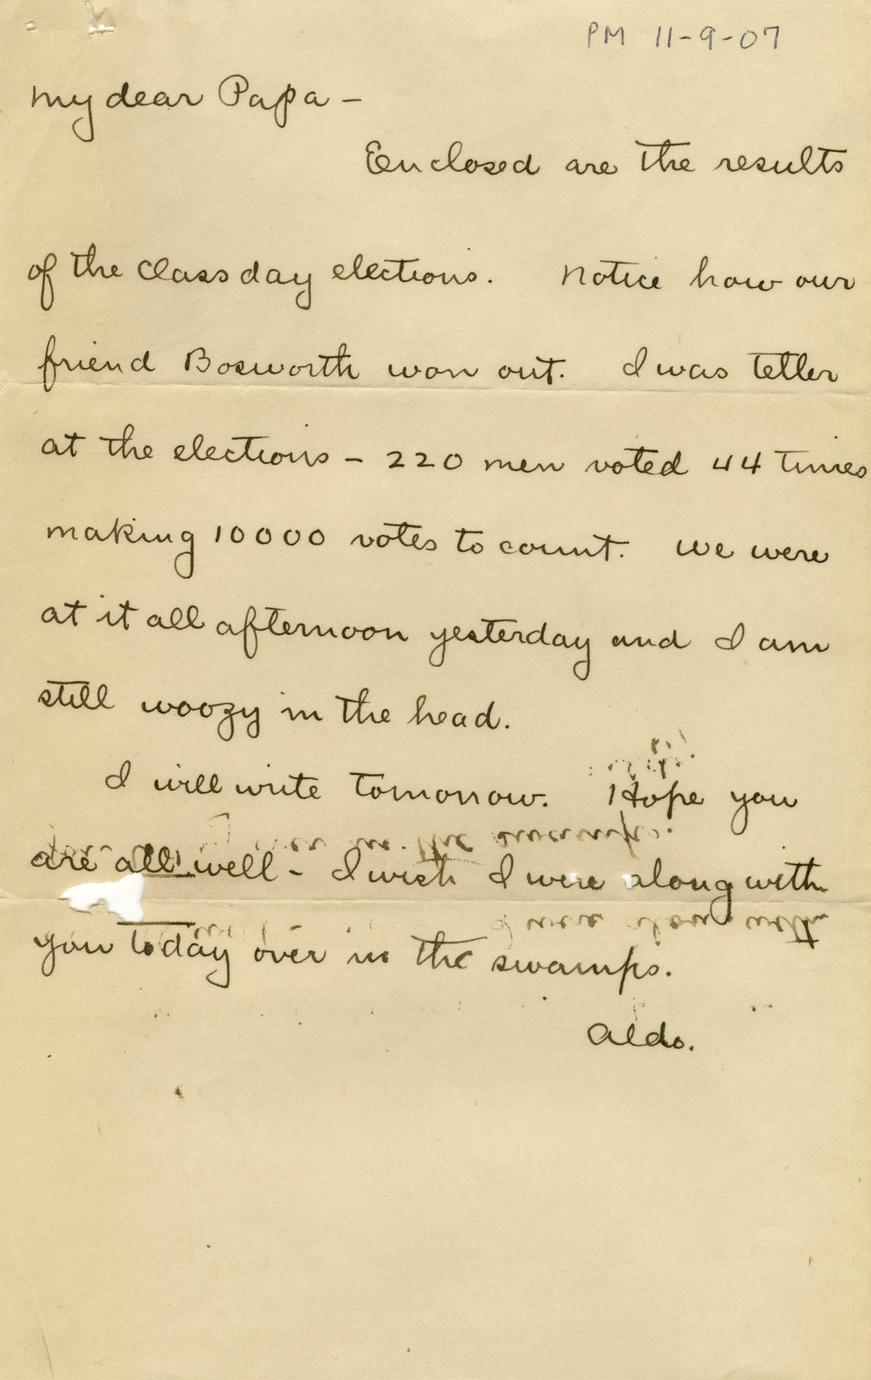 PM 11-9-07
My dear Papa –
Enclosed are the results
of the Class day elections. Notice how our
friend Bosworth won out. I was teller
at the elections – 220 men voted 44 times
making 10000 votes to count. We were
at it all afternoon yesterday and I am
still woozy in the head.
I will write tomorrow. Hope you
are all well – I wish I were along with
you today over in the swamps.
Aldo.